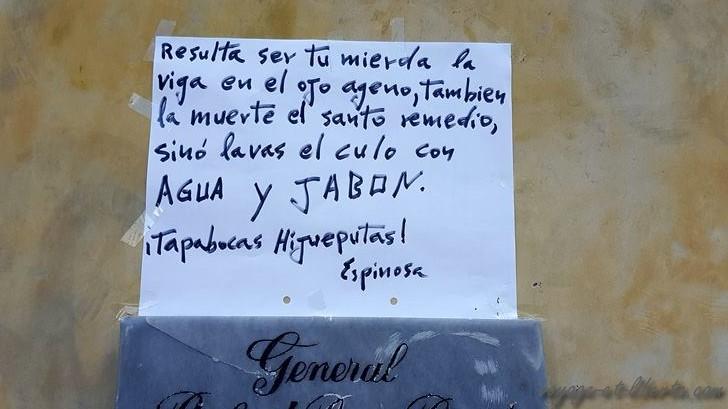 Resulta ser tu mierda la
viga en el ojo ageno, tambien
la muerte el santo remedio,
sinó lavas el culo con
AGUA y JABON.
¡Tapabocas Higueputas!
Espinosa
General